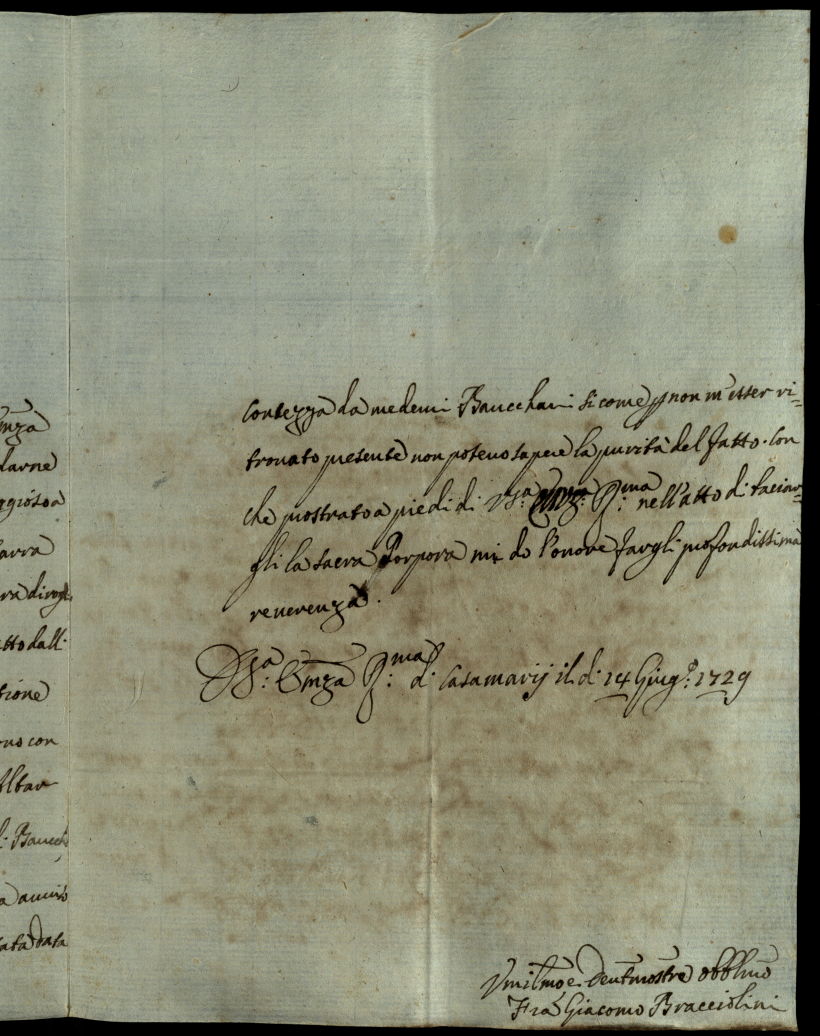 enza
darne
ggioso a
arra
tto dall:
zione
ono con
Altar
: Baucch
a auuiso
data
contezza da medemi Baucchari si come p non m'esser ri=
trouato presente non poteuo sapere la purità del fatto. Con
che prostrato a piedi di V.sa Emza R:ma nell'atto di baciar=
gli la sacra Porpora mi do l'onore fargli profondissima
reuerenza.
D V.sa Emza R:ma di Casamarij il di 14 Giug:o 1729
Vmilmo e Deutmo stre obblmo
Fra Giacomo Bracciolini